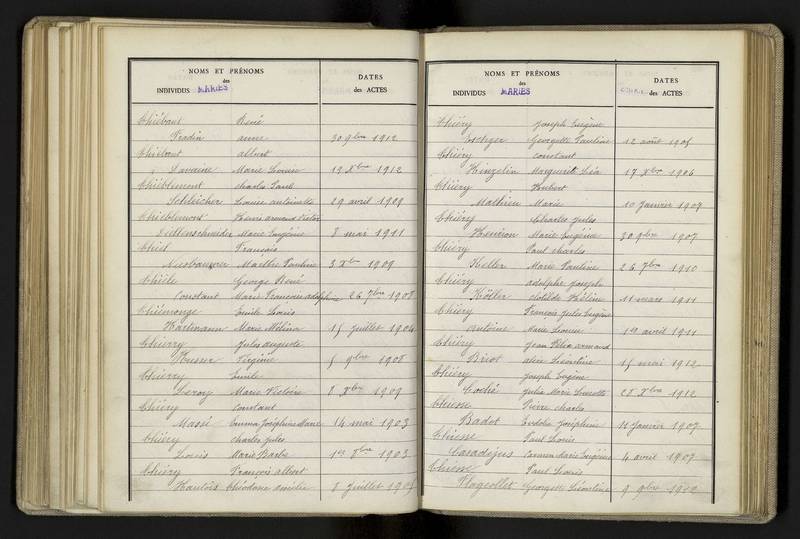 NOMS ET PRÉNOMS
des
INDIVIDUS MARIÉS
DATES
des ACTES
Thiébaut René
Pradin anne 30 9bre 1912
Thiébaut albert
Lavaine Marie Louise 19 Xbre 1912
Thiéblemont charles Paul
Schleicher Louise antoinette 29 avril 1909
Thiéblemont Henri armand Victor
Diettenschneider Marie Eugénie 8 mai 1911
Thiel François
Nusbaumer Marthe Pauline 3 Xbre 1909
Thiele George René
Constant Marie Françoise adolphine 26 7bre 1908
Thiémonge Emile Louis
Hartmann Marie Mélina 15 juillet 1904
Thierry Jules auguste
Husser Virginie 5 9bre 1908
Thierry Emile
Leroy Marie Victoire 8 Xbre 1909
Thiéry Constant
Massé Emma Joséphine Marie 14 mai 1903
Thiéry charles Jules
Louis Marie Barbe 1er 8bre 1903
Thiéry François albert
Hautois Théodorine amélie 8 Juillet 1905
NOMS ET PRÉNOMS
des
INDIVIDUS MARIÉS
DATES
des ACTES
Thiéry Joseph Eugène
Georgette Pauline 12 août 1905
Thiéry constant
Hinzelin Marguerite Léa 17 Xbre 1906
Thiéry Hubert
Mathieu Marie 10 Janvier 1907
Thiéry Charles Jules
Henrion Marie Eugénie 30 9bre 1907
Thiéry Paul charles
Keller Marie Pauline 26 7bre 1910
Thiéry adolphe Joseph
Köller clotilde Hélène 11 mars 1911
Thiéry François Jules Eugène
Antoine Marie Louise 1er avril 1911
Thiéry Jean Félix armand
Briot alice Léontine 15 mai 1912
Thiéry Joseph Eugène
Coché Julia Marie 28 Xbre 1912
Thiesse Pierre charles
Badot Eudolie Joséphine 11 Janvier 1907
Thiesse Paul Louis
Casadejus Carmen Marie Eugénie 4 avril 1907
Thiesse Paul Louis
Hageollet Georgette Léontine 9 9bre 1912